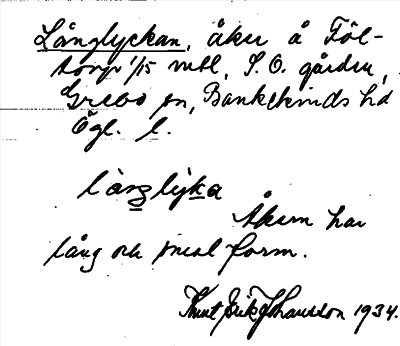 Långlyckan, åker å Föl-
torp 1/15 mtl, S. O. gården,
Grebo sn, Bankekinds hd
Ögl. l.
làŋlyka
Åkern har
lång och smal form.
Knut Erik Johansson 1934.